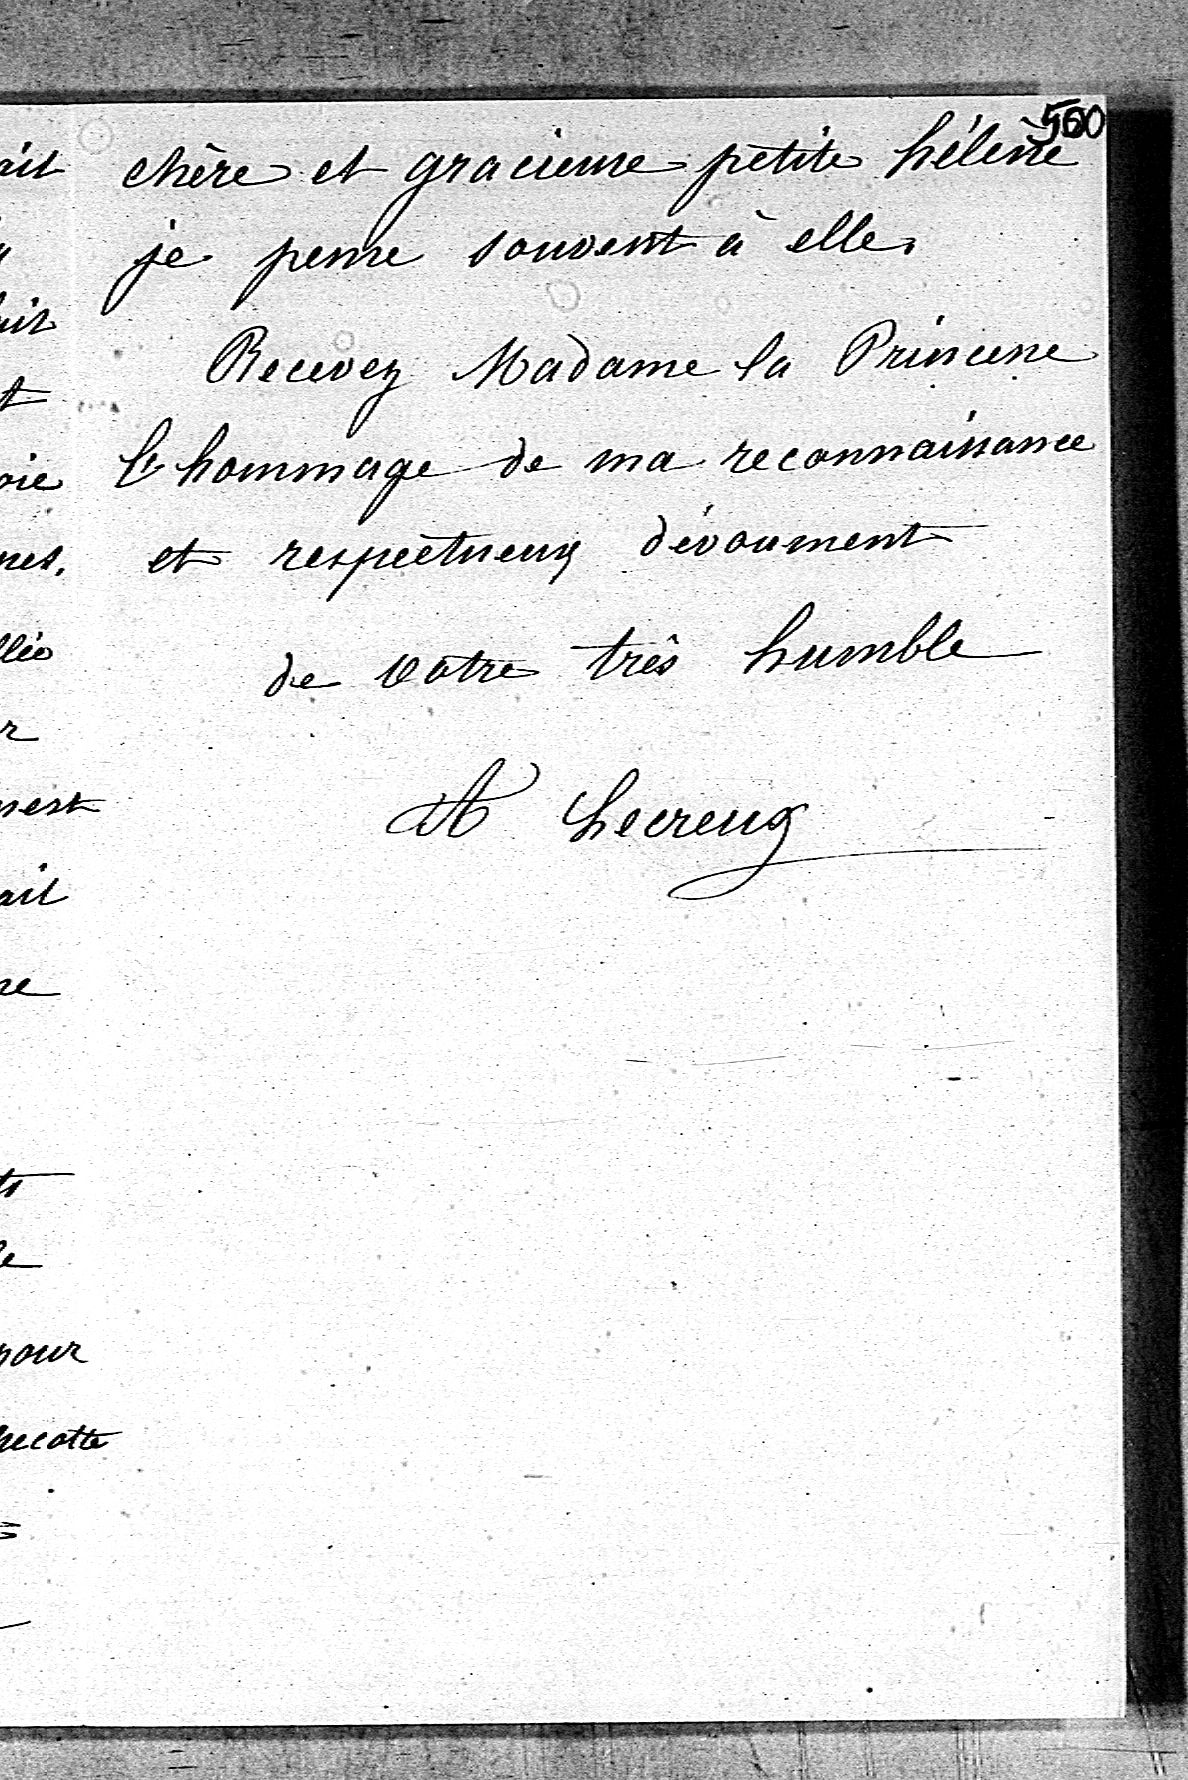 500
chère et gracieuse petite hélène
je pense souvent à elle.
Recevez Madame la Princesse
l'hommage de ma reconnaissance
et respectueux dévoument
de votre très humble
A Lecreux
ait
ait
t
oie
nes.
llée
r
ment
ait
re
ts
le
pour